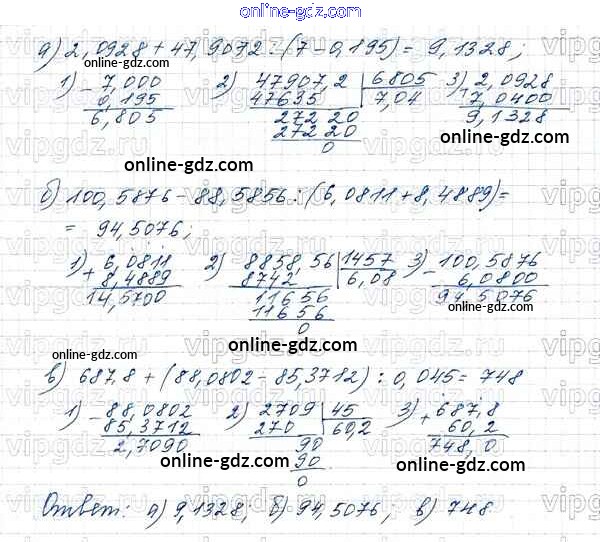 online-gdz.com
а) 2,0928 + 47,9072 : (7 - 0,195) = 9,1328;
1) - 7,000
0,195
6,805
2) 47907,2 | 6805
47635 | 7,04
272 20
272 20
0
3) + 2,0928
7,0400
9,1328
online-gdz.com
online-gdz.com
б) 100,5876 - 88,5856 : (6,0811 + 8,4889) =
= 94,5076;
1) + 6,0811
8,4889
14,5700
2) 8858,56 | 1457
8742 | 6,08
116 56
116 56
0
3) - 100,5876
6,0800
94,5076
online-gdz.com
online-gdz.com
online-gdz.com
в) 687,8 + (88,0802 - 85,3712) : 0,045 = 748
1) - 88,0802
85,3712
2,7090
2) 2709 | 45
270 | 60,2
90
90
0
3) + 687,8
60,2
748,0
online-gdz.com
online-gdz.com
online-gdz.com
Ответ: а) 9,1328; б) 94,5076; в) 748
online-gdz.com